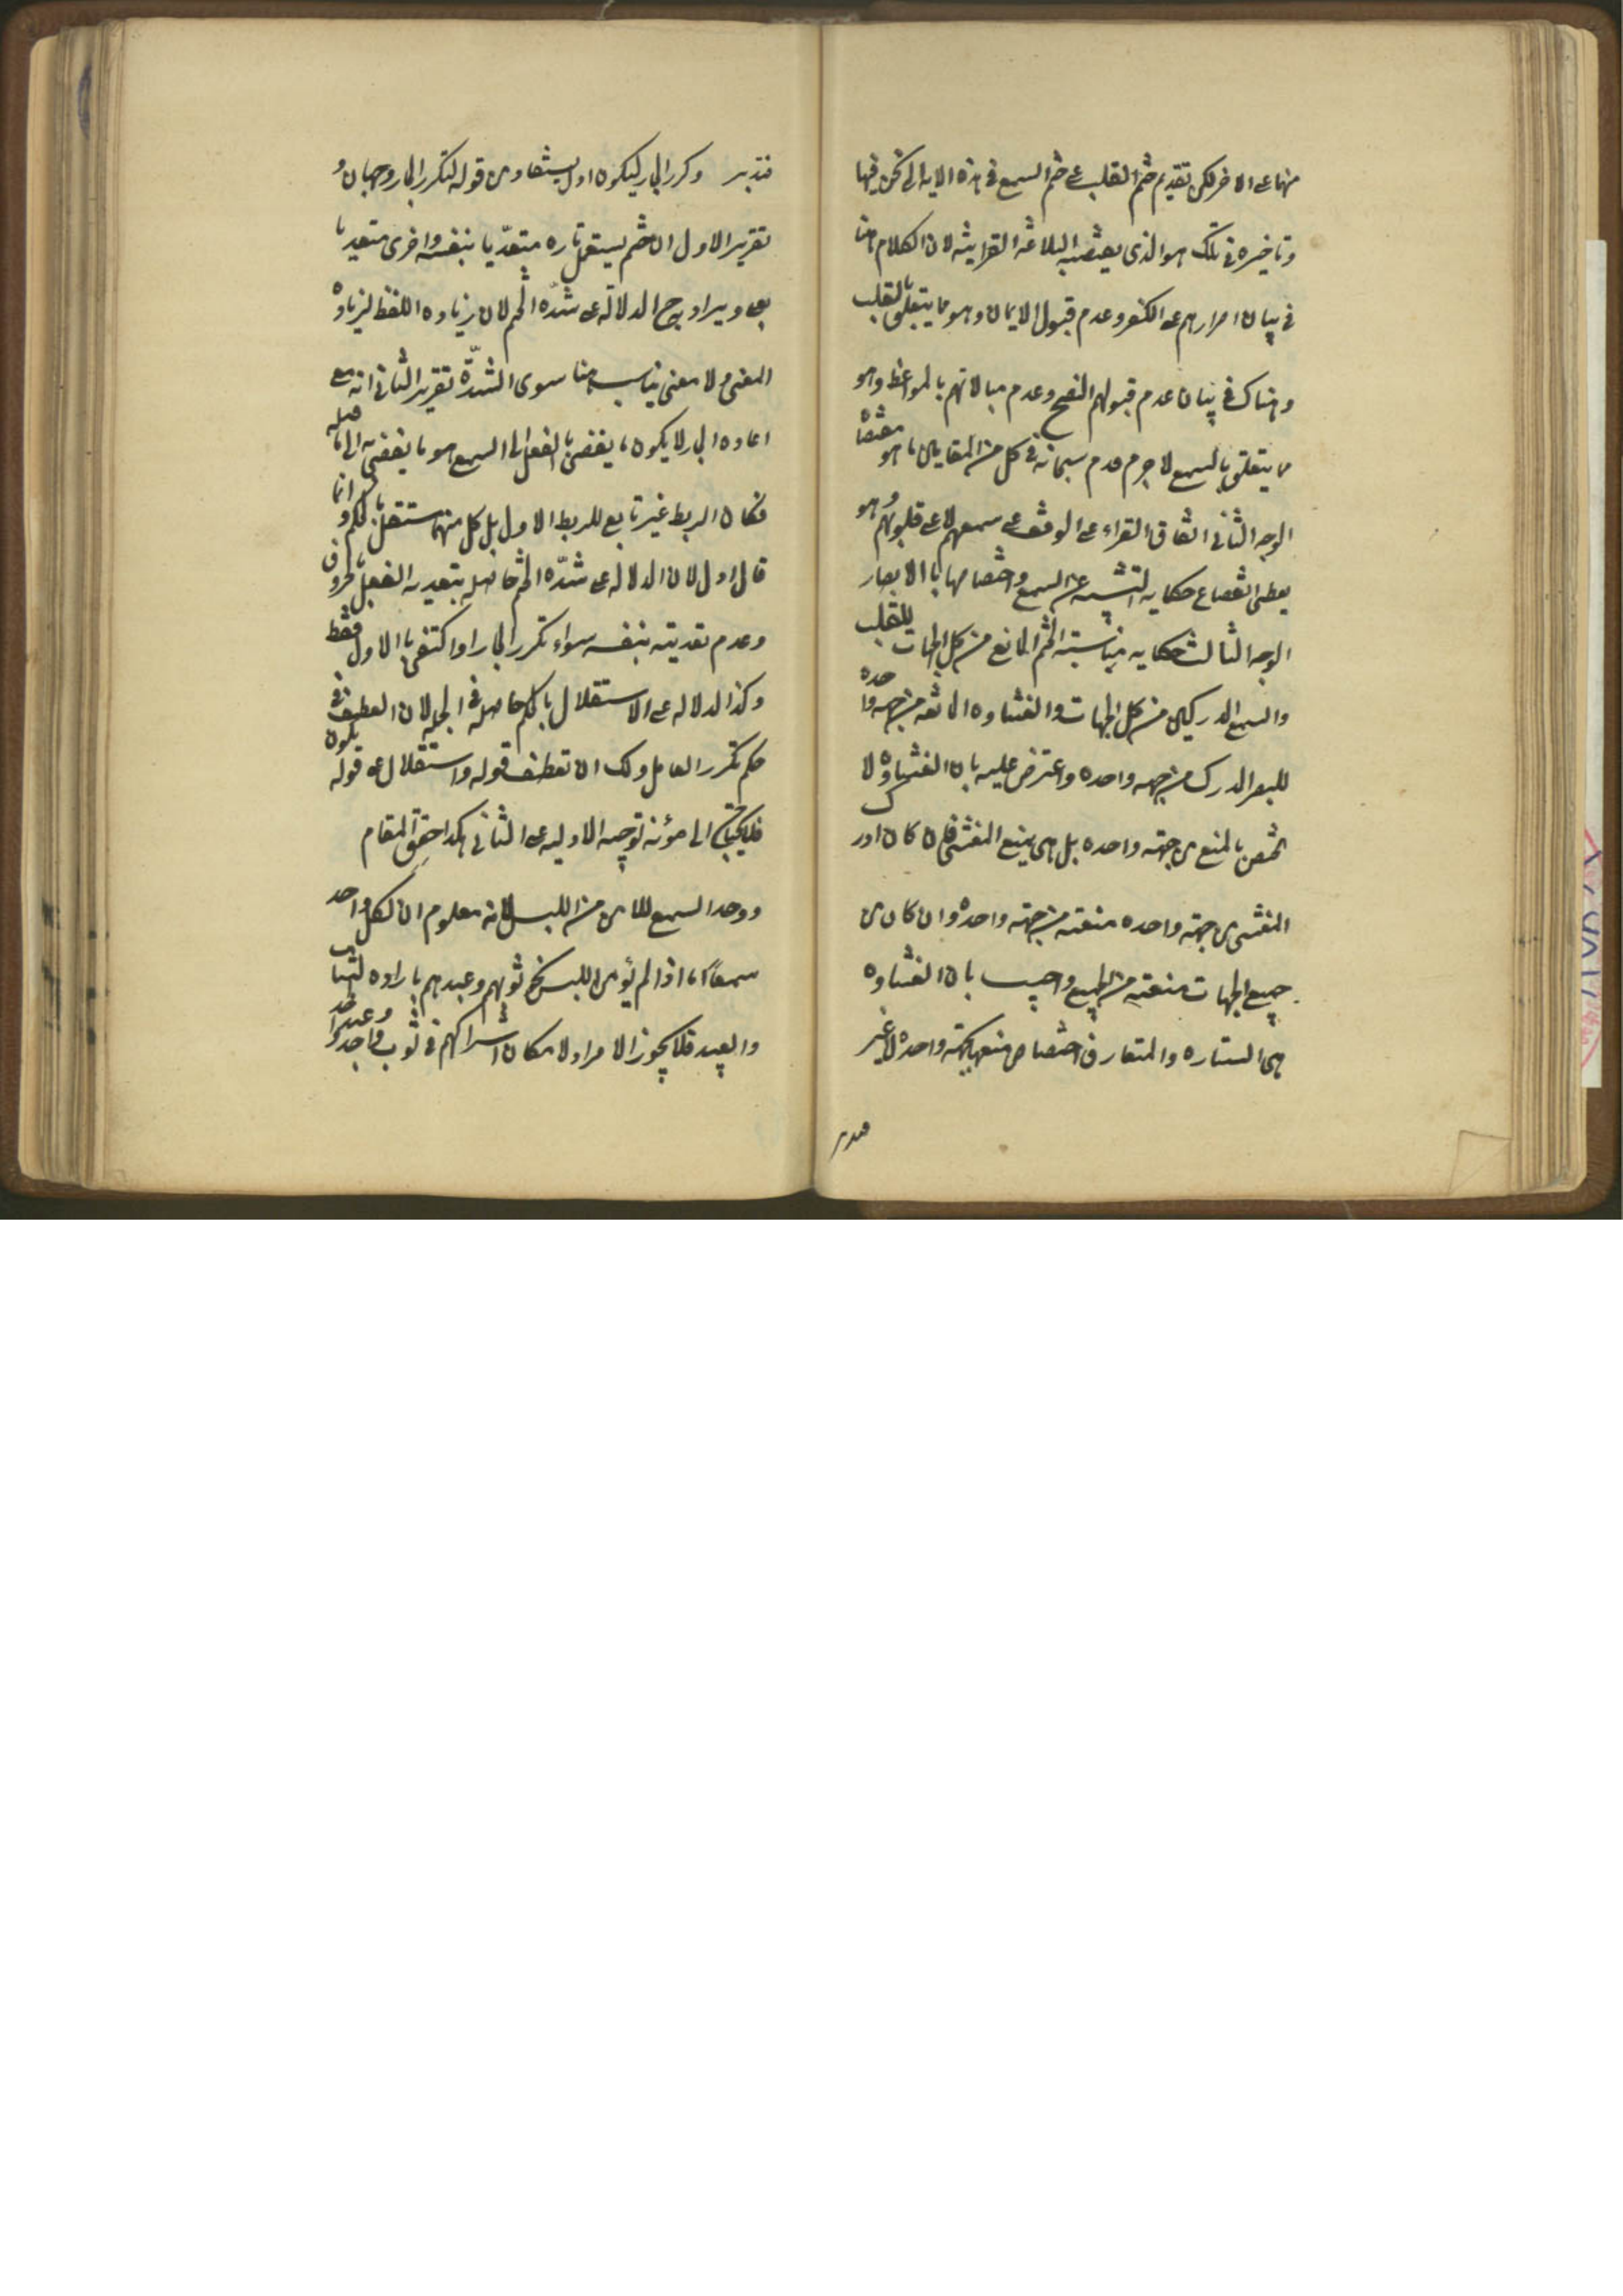 منهما على الاخر لكن تقديم ختم القلب على ختم السمع فى هذه الايه التى نحن فيها
وتاخيره فى تلك هو الذى يقتضيه البلاغه القرانيه لان الكلام هنا
فى بيان اصرارهم على الكفر وعدم قبول الايمان وهو مما يتعلق بالقلب
وهناك فى بيان عدم قبولهم النصح وعدم مبالاتهم بالمواعظ وهو
مما يتعلق بالسمع لا جرم قدم سبحانه فى كل من المقامين ما هو
الوجه الثانى اتفاق القراء على الوقف على سمعهم لا على قلوبهم وهو
يعطى انقطاع حكايه التغشيه عن السمع واختصاصها بالابصار
الوجه الثالث حكايه مناسبته الختم المانع من كل الجهات للقلب
والسمع المدركين من كل الجهات والغشاوه المانعه من جهه واحده
للبصر المدرك من جهه واحده واعترض عليه بان الغشاوه لا
تختص بالمنع من جهته واحده بل هى يمنع المغشى فان كان ادرك
المغشى من جهته واحده منعته من جهته واحده وان كان من
جميع الجهات منعته من الجميع واجيب بان الغشاوه
هى الستاره والمتعارف اختصاص منعها بجهته واحده لا غير
فتدبر وكرر الجار ليكون ادل يستفاد من قوله لتكرر الجار وجهان و
تقرير الاول ان ختم يستعمل تاره متعدّيا بنفسه واخرى متعديا
بعلى ويراد ح الدلالة على شدّه الختم لان زياده اللفظ لزياده
المعنى ولا معنى يناسب هنا سوى الشدّة تقرير الثانى انه مع
اعاده الجار لا يكون ما يفضى بالفعل الى السمع هو ما يفضى به الى ما قبله
فكان الربط غير تابع للربط الاول بل كل منهما مستقل بالحكم وانما
قال ادل لان الدلاله على شدّه الختم حاصله بتعديه الفعل بالحروف
وعدم تعديته بنفسه سواء تكرر الجار او اكتفى بالاول فقط
وكذا الدلاله على الاستقلال بالحكم حاصله فى الجمله لان العطف فى
حكم تكرر العامل ولك ان تعطف قوله واستقلال على قوله يكون
فلا يحتاج الى مؤنه توجيه الاوليه على الثانى هكذا حقق المقام
ووحد السمع للامن من اللبس لانه معلوم ان لكل واحد
سمعًا اما اذا لم يؤمن اللبس نحو ثوبهم وعبدهم باراده الثياب
والعبيد فلا يجوز الافراد لامكان اشتراكهم فى ثوب واحد وعبد واحد